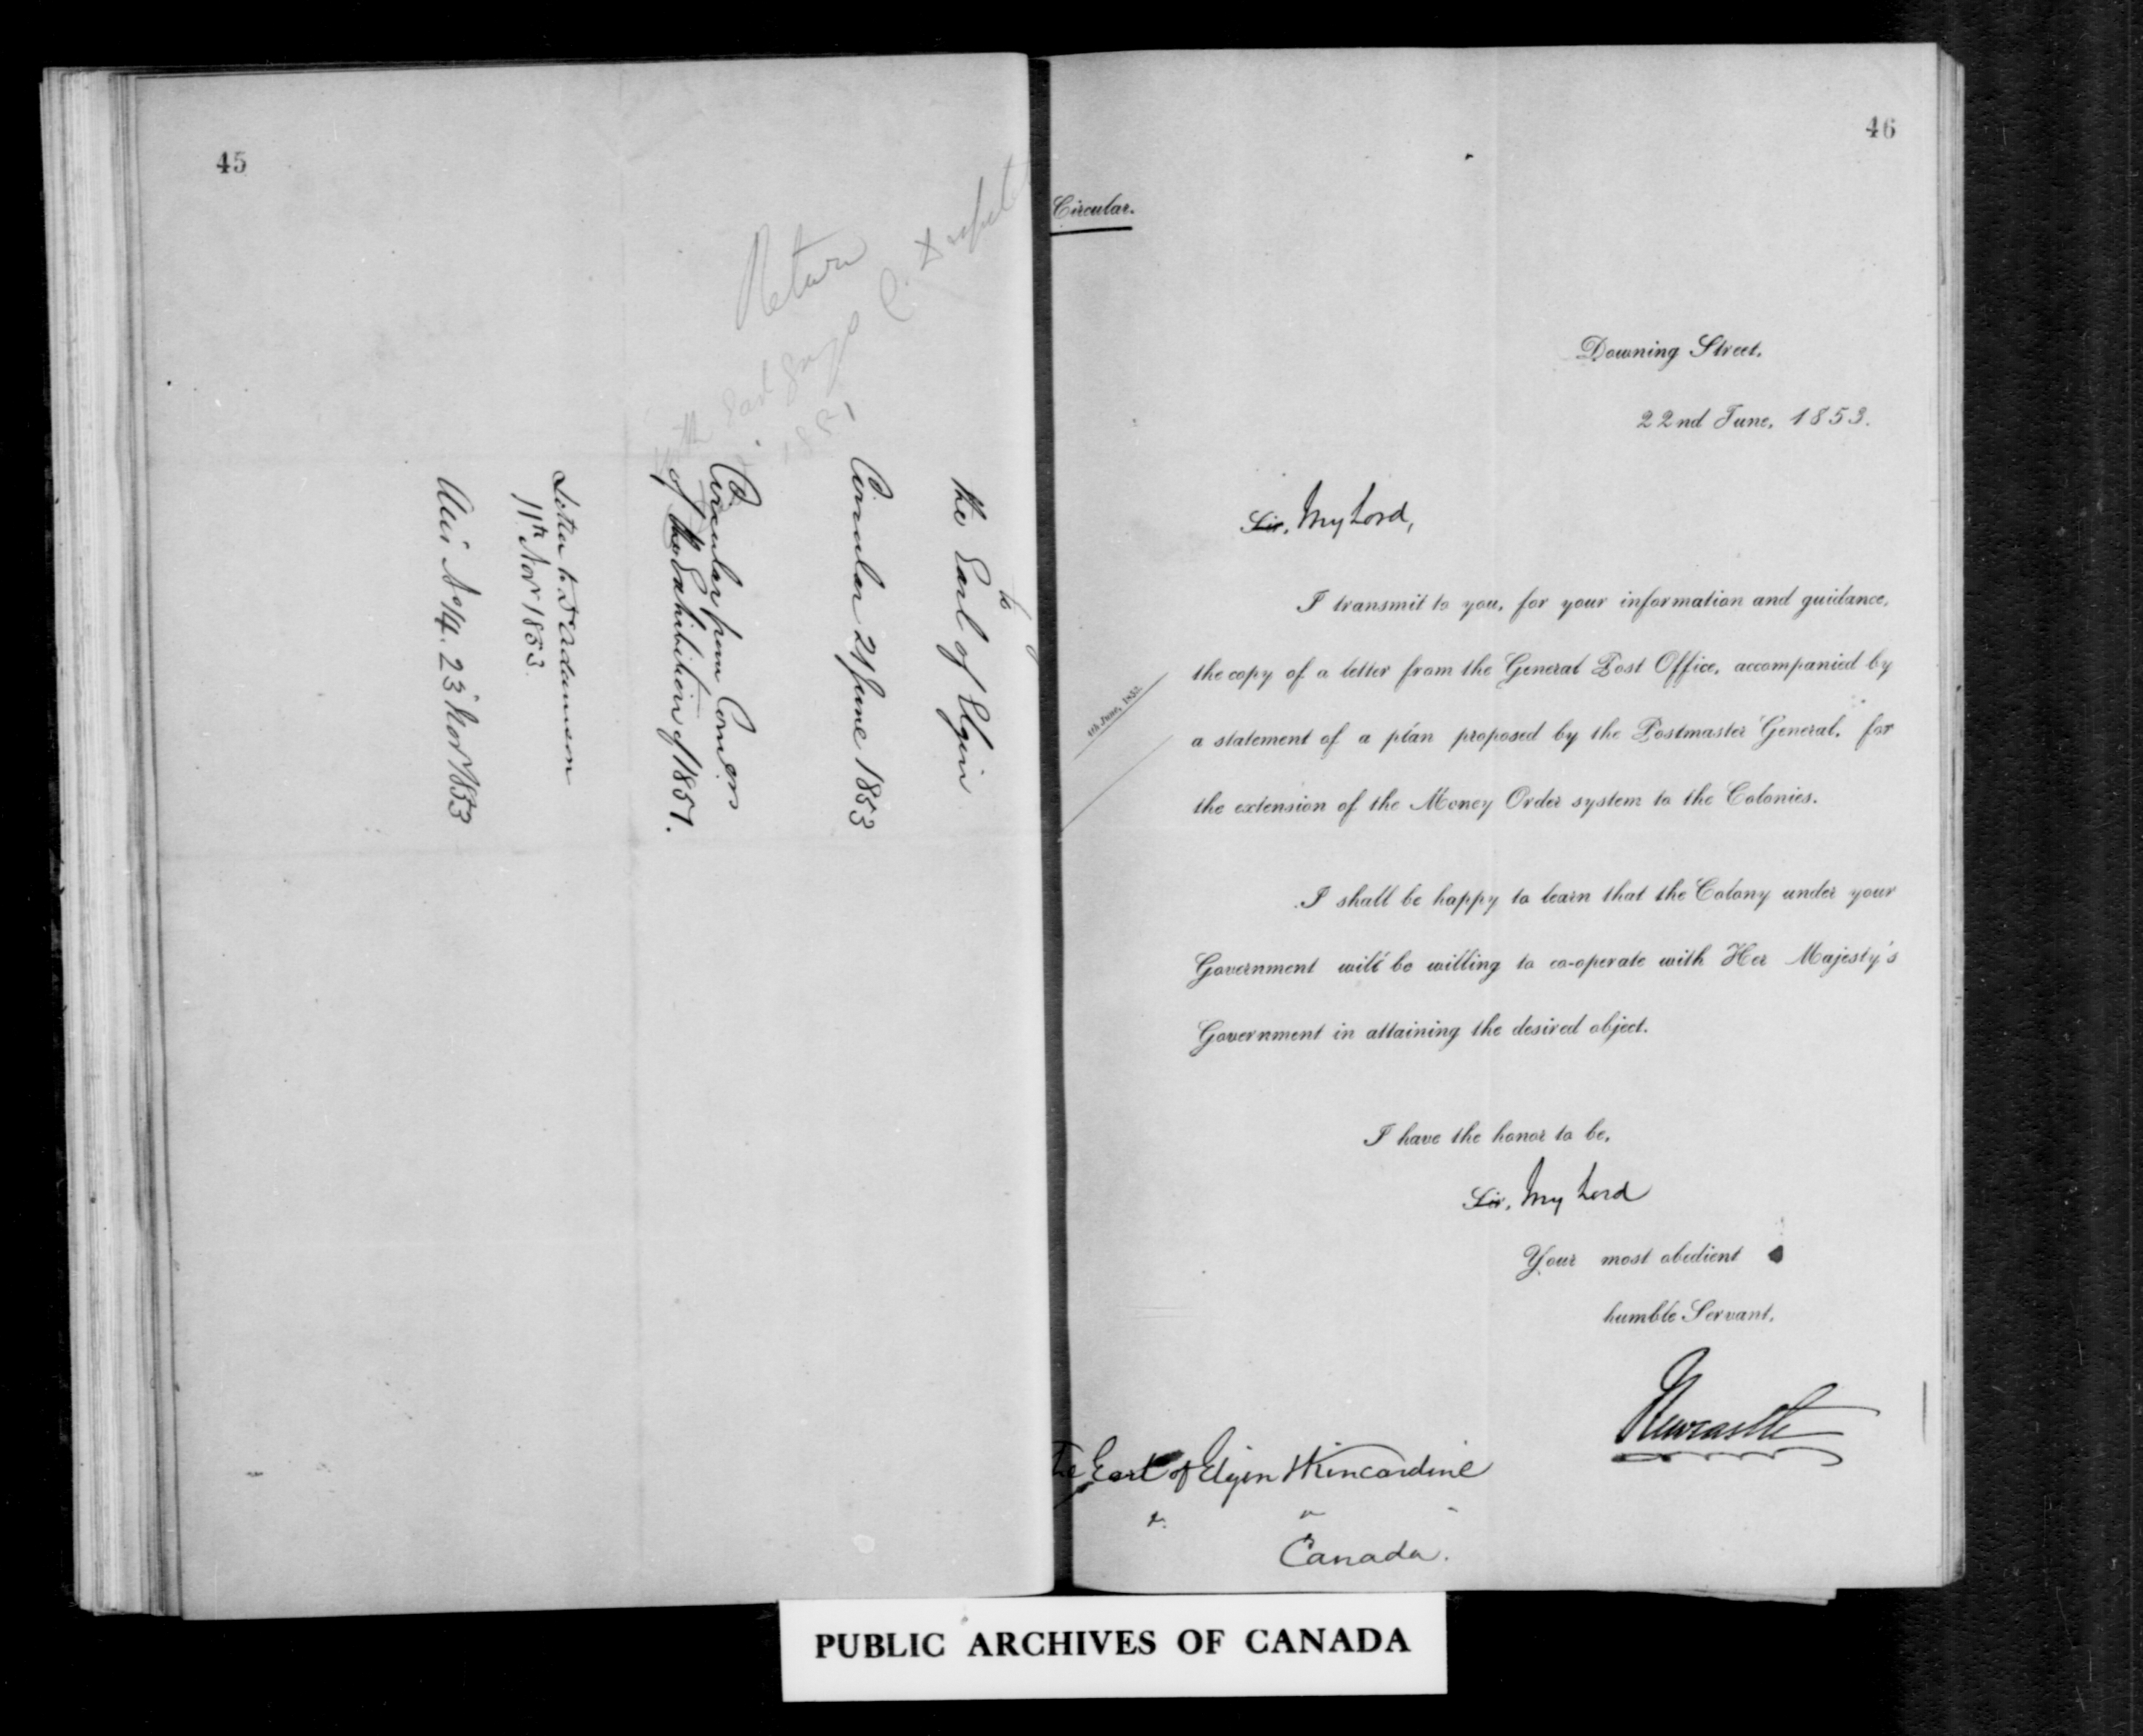 45
Return
to
the Earl of Elgin
Circular 21 June 1853
Circular from Com
of the Exhibition of 1851.
Letter to
11th Nov 1853
No 14. 23 Nov 1853
46
Circular.
Downing Street.
22nd June, 1853.
Sir, My Lord,
I transmit to you, for your information and guidance,
the copy of a letter from the General Post Office, accompanied by
4th June, 1853.
a statement of a plan proposed by the Postmaster General, for
the extension of the Money Order system to the Colonies.
I shall be happy to learn that the Colony under your
Government will be willing to co-operate with Her Majesty's
Government in attaining the desired object.
I have the honor to be,
Sir, My Lord
Your most obedient
humble Servant,
Newcastle
The Earl of Elgin & Kincardine
Canada.
PUBLIC ARCHIVES OF CANADA